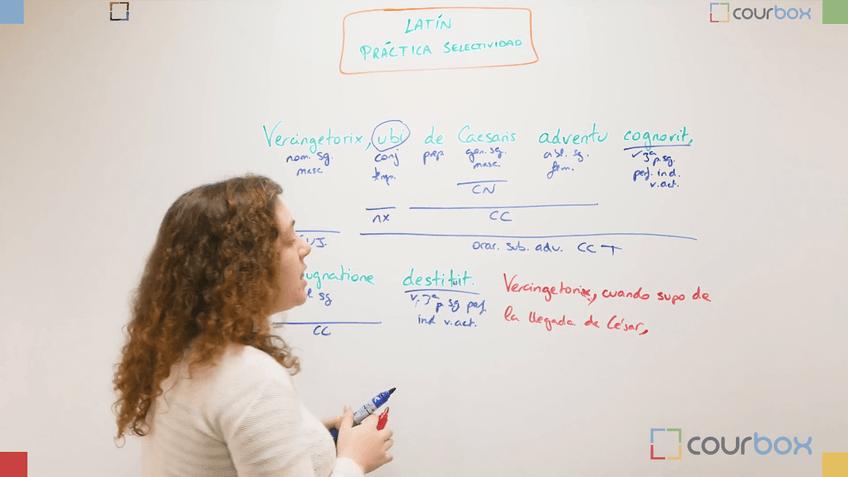 courbox
LATÍN
PRÁCTICA SELECTIVIDAD
Vercingetorix, ubi de Caesaris adventu cognovit,
nom. sg. conj prep gen. sg. abl. sg. v 3ª p sg.
masc temp. masc fem. perf. ind.
v. act.
CN
nx CC
SUJ. orac. sub. adv. CC T
ugnatione destituit. Vercingetorix, cuando supo de
sg v. 3ª p sg perf. la llegada de César,
CC ind v. act.
courbox